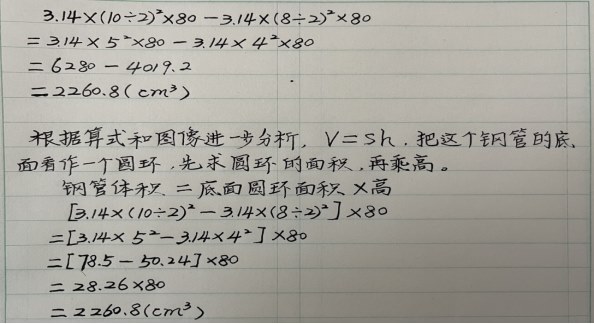 3.14×(10÷2)²×80-3.14×(8÷2)²×80
=3.14×5²×80-3.14×4²×80
=6280-4019.2
=2260.8(cm³)
根据算式和图像进一步分析,V=Sh,把这个钢管的底
面看作一个圆环,先求圆环的面积,再乘高。
钢管体积=底面圆环面积×高
[3.14×(10÷2)²-3.14×(8÷2)²]×80
=[3.14×5²-3.14×4²]×80
=[78.5-50.24]×80
=28.26×80
=2260.8(cm³)